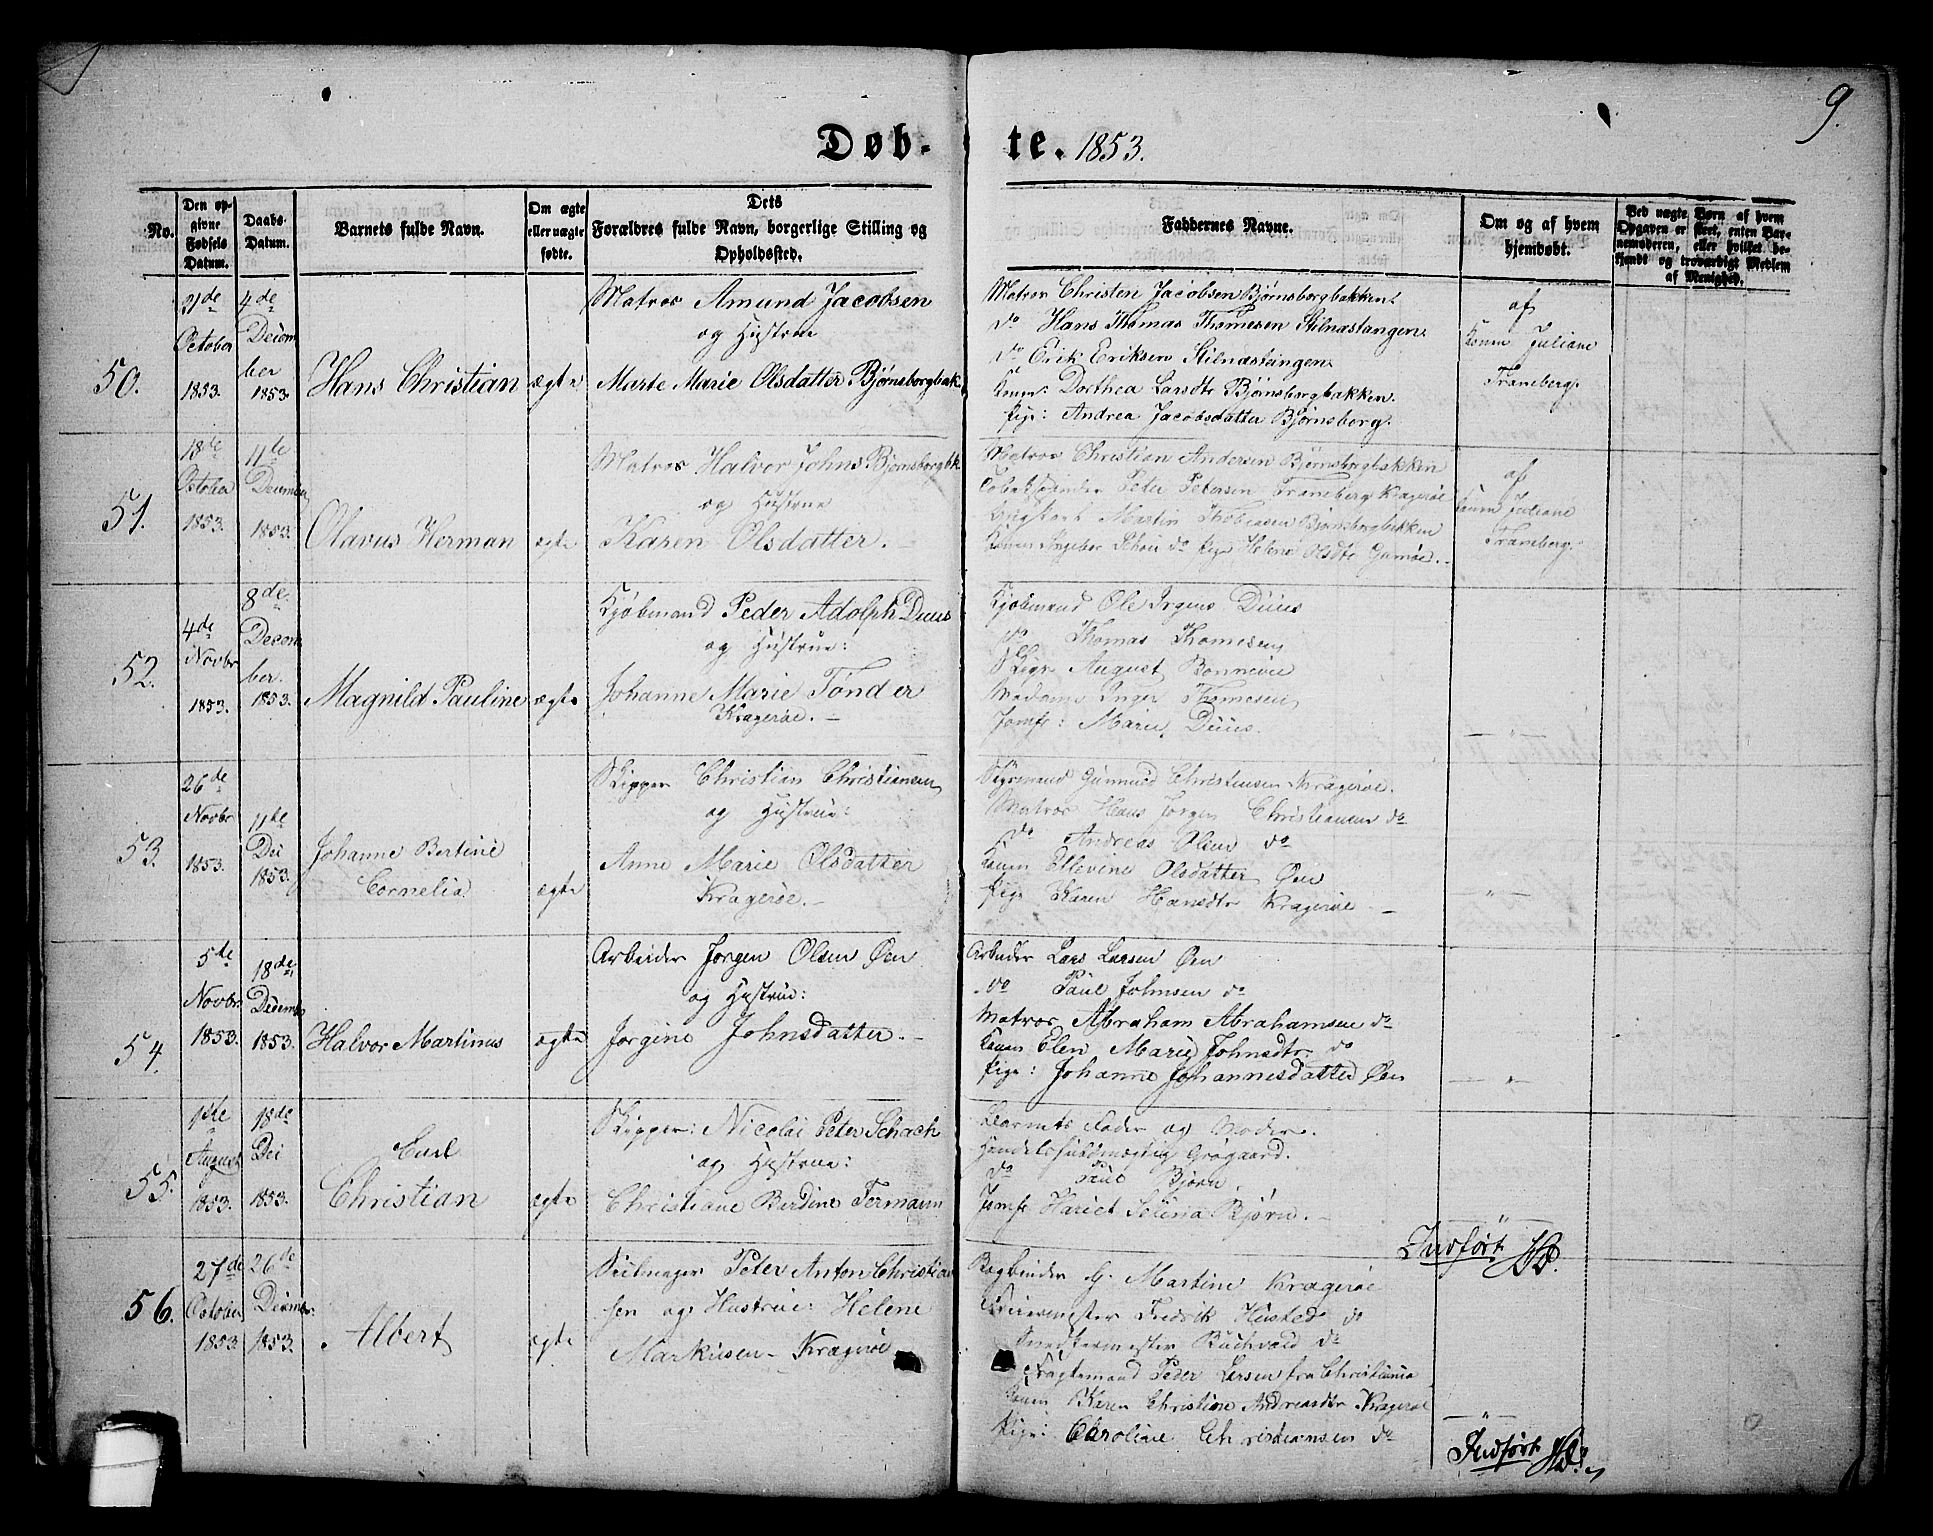 9.
Døb- te. 1853.
No.
Den op-
givne
Fødsels
Datum.
Daabs-
Datum.
Barnets fulde Navn.
Om ægte
eller uægte
fødte.
Dets
Forældres fulde Navn, borgerlige Stilling og
Opholdssted.
Faddernes Navne.
Om og af hvem
hjemdøbt.
Ved uægte Børn af hvem
Opgaven er skeet, enten Bar-
nemoderen, eller hvilket be-
kjendt og troværdigt Medlem
af Menighed.
50.
21de
October
1853.
4de
Decem
ber
1853.
Hans Christian
ægte
Matros Amund Jacobsen
og Hustrue
Marte Marie Olsdatter Bjørnsborgbak.
Matros Christen Jacobsen Bjørnsborgbakken.
do Hans Thomas Thomesen Stilnæstangen.
do Erik Eriksen Stilnæstangen.
Konen: Dorthea Larsdtr Bjørnsborgbakken.
Pige: Andrea Jacobsdatter Bjørnsborg.
af
Konen Juliane
Traneberg.
51.
18de
October
1853.
11te
1853.
Olavus Herman
ægte
Matros Halvor Johns. Bjørnsborgbk.
og Hustrue
Karen Olsdatter.
Matros Christian Andersen Bjørnsborgbakken
Tobakspinder Peter Petersen Traneberg Kragerøe
Martin Bjørnsborgbakken
Konen Ingebor Schou do Pige Helene Olsdtr Gumøe.
af
Konen Juliane
Traneberg.
52.
4de
Novbr
1853.
8de
Decem
ber.
1853.
Magnild Pauline
ægte
Kjøbmand Peder Adolph Duus
og Hustrue:
Johanne Marie Tønder
Kragerøe.
Kjøbmand Ole Irgens Duus
do Thomas Thomesen
August Bonnevie
Madame Inger Thomesen
Jomfr: Marie Duus.
— " —
53.
26de
Novbr
1853.
11te
Dec
1853.
Johanne Bertine
Cornelia
ægte
Skipper Christian Christiansen
og Hustrue:
Anne Marie Olsdatter
Kragerøe.
Styrmand Gunnud Christensen Kragerøe.
Matros Hans Jørgen Christiansen do
do Andreas Olsen do
Konen Ellevine Olsdatter Øen
Pige Karen Hansdtr Kragerøe
— " —
54.
5de
Novbr
1853.
18de
Decembr
1853.
Halvor Martinus
ægte
Arbeider Jørgen Olsen Øen
og Hustrue:
Jørgine Johnsdatter.
Arbeider Lars Larsen Øen
do Paul Johnsen do
Matros Abraham Abrahamsen do
Konen Elen Marie Johnsdtr. do
Pige: Johanne Johannesdatter Øen
— " —
55.
1ste
August
1853.
18de
Dec
1853.
Carl
Christian
ægte
Skipper: Nicolai Peter Schach
og Hustrue:
Christiane Berdine Fermann
Barnets Fader og Moder.
Handelsfuldmægtig Grøgaard.
do Paul Bjørn.
Jomfr Hariet Selena Bjørn.
— " —
Indført
56.
27de
October
1853.
26de
Decembr.
1853.
Albert
ægte
Seilmager Peter Anton Christian
sen og Hustrue: Helene
Markusen Kragerøe
Bogbinder G. Martine Kragerøe
Fredrik Husted do
Snedkermester Buchvald do
Fragtemand Peder Larsen fra Christiania
Konen Karen Christine Andreasdtr Kragerøe
Pige: Caroline Christiansen do
— " —
Indført